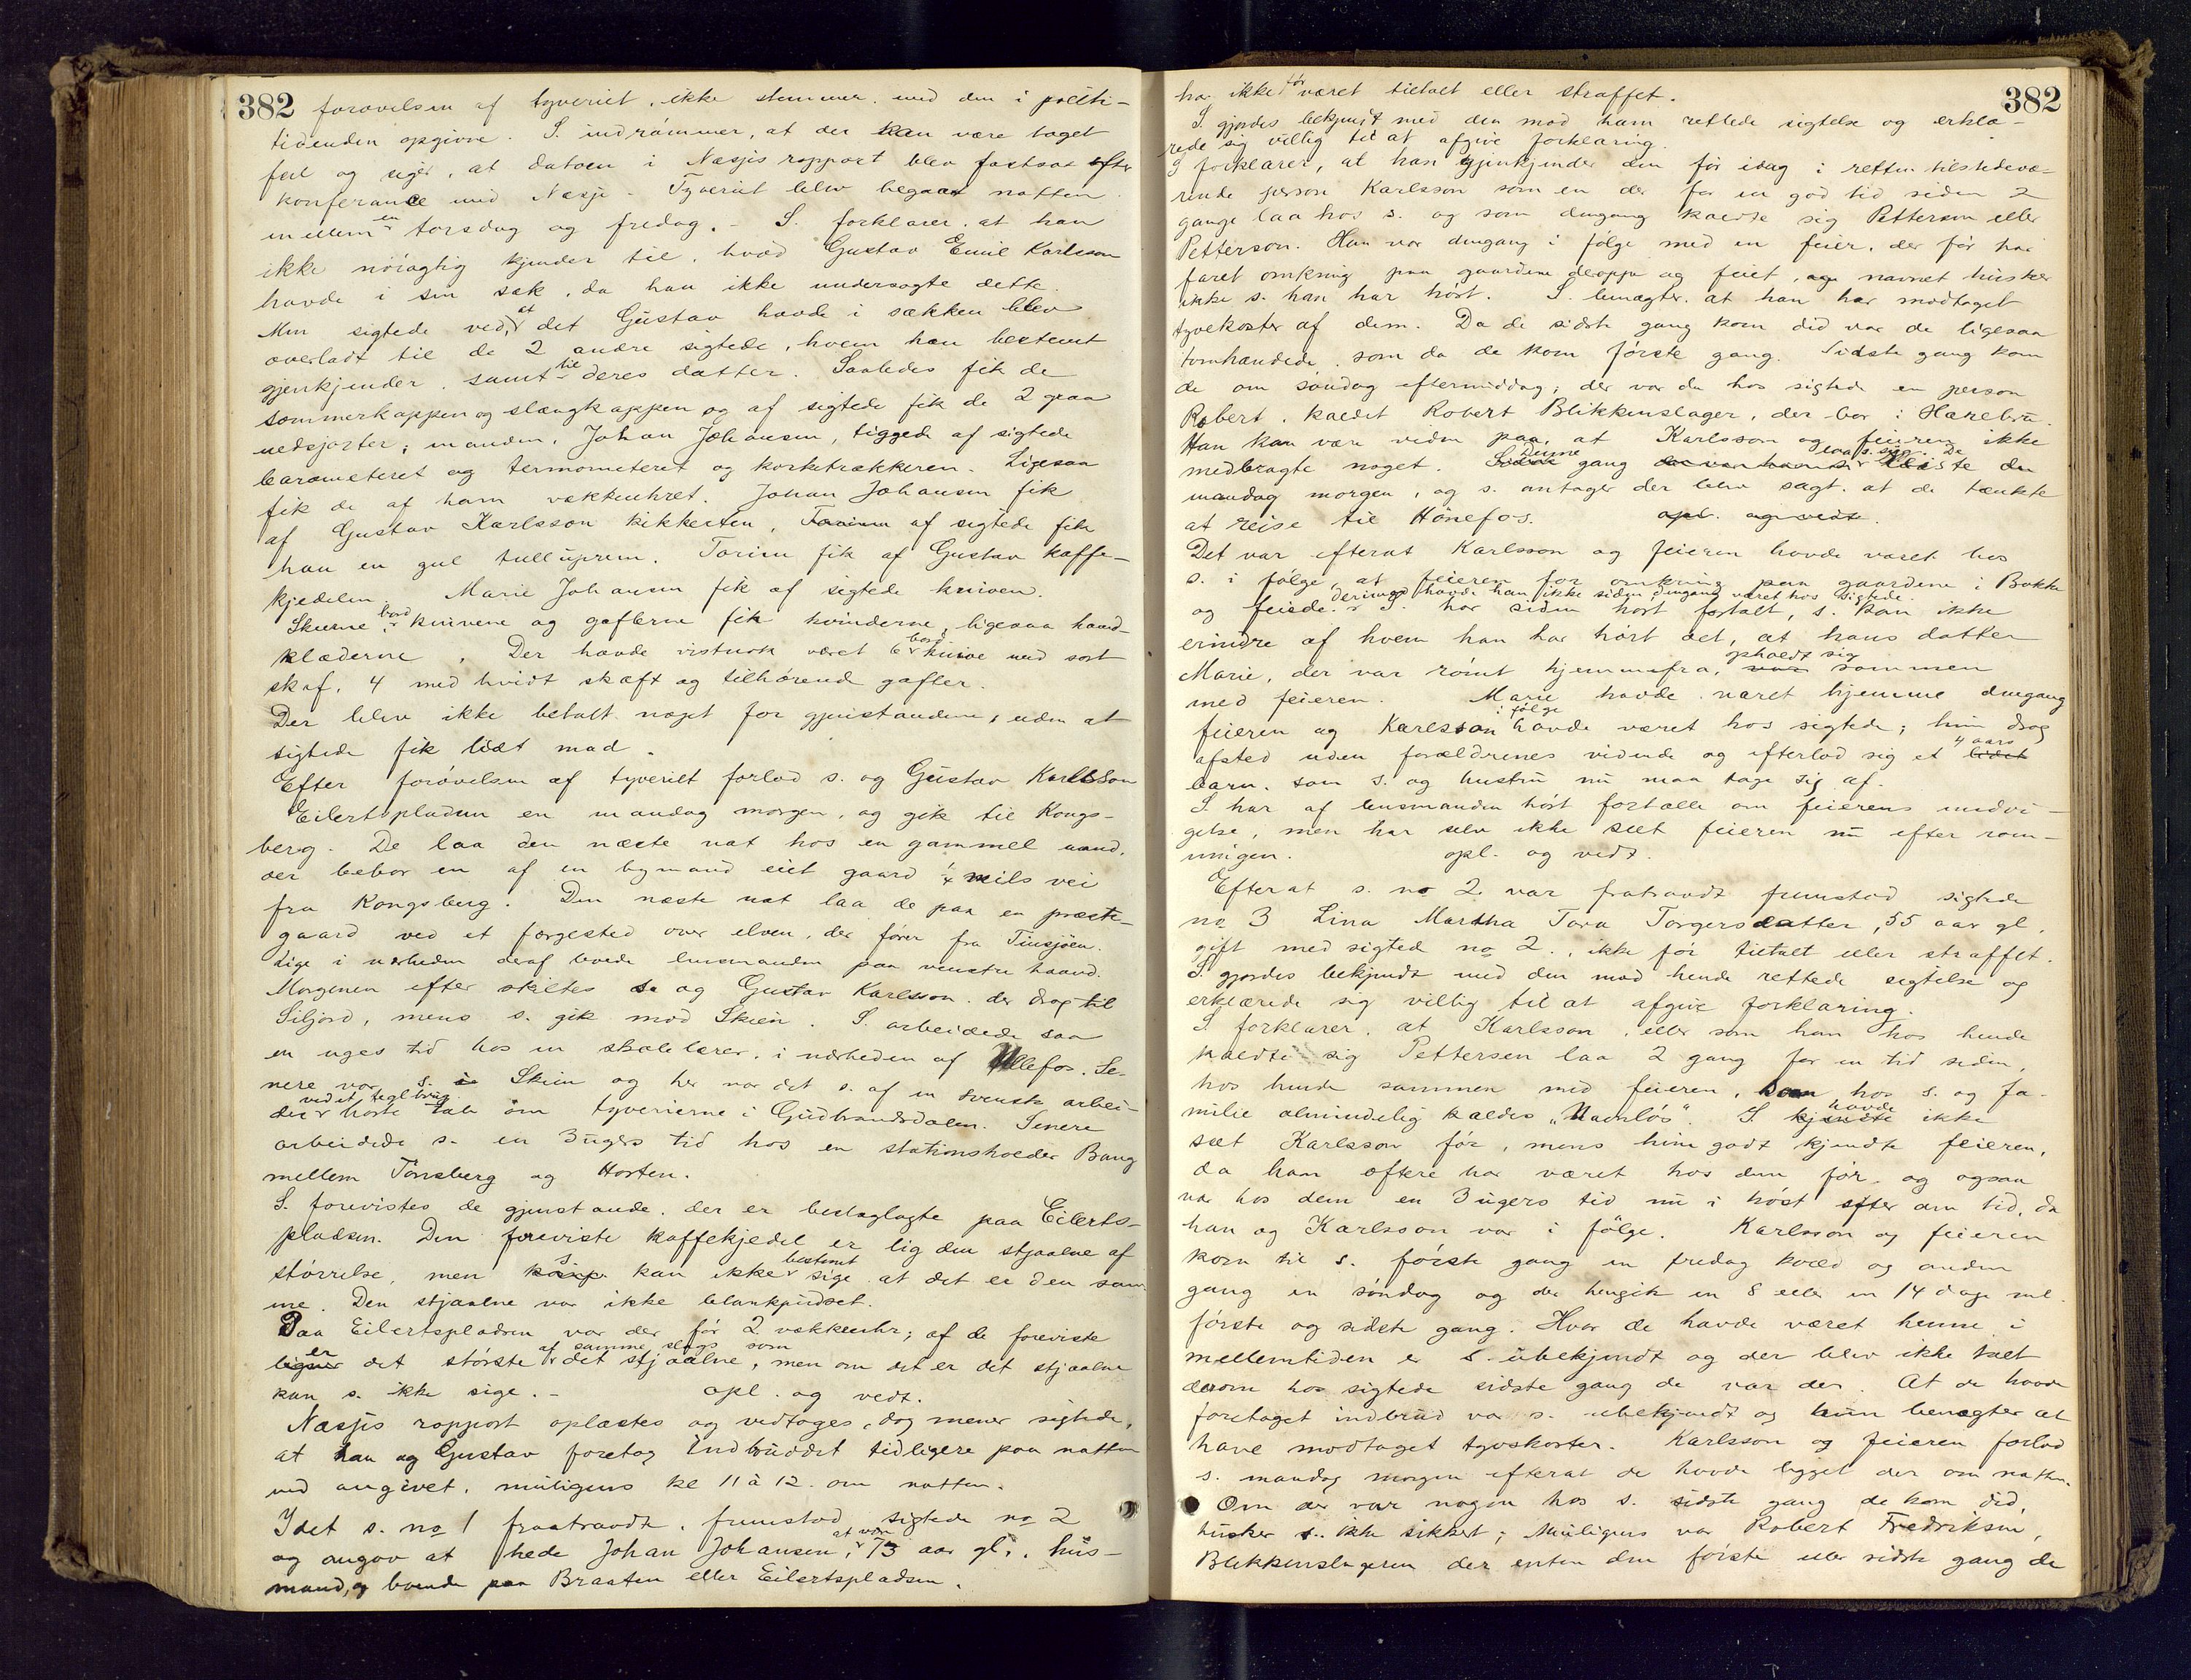 382
forøvelsen af tyveriet, ikke stemmer med den i politi-
tidenden opgivne. S. indrømmer, at der kan være taget
feil og siger, at datoen i Næsjes rapport blev fastsat efter
konferance med Næsje. Tyveriet blev begaaet natten
mellem en torsdag og fredag. - S. forklarer, at han
ikke nøiagtig kjender til, hvad Gustav Emil Karlsson
havde i sin sæk, da han ikke undersøgte dette.
Men sigtede ved, at det Gustav havde i sækken blev
overladt til de 2 andre sigtede, hvem han bestemt
gjenkjender, samt til deres datter. Saaledes fik de
sommerkappen og slængkappen og af sigtede fik de 2 graa
uldsjorter; manden, Johan Johansen, tiggede af sigtede
barometeret og termometeret og korketrækkeren. Ligesaa
fik de af ham vækkeuhret. Johan Johansen fik
af Gustav Karlsson kikkerten, af sigtede fik
han en gul tulluprem. Torine fik af Gustav kaffe-
kjedelen. Marie Johansen fik af sigtede kniven.
Skeerne, bordknivene og gaflerne fik kvinderne, ligesaa haand-
klæderne. Der havde vistnok været 6 bordknive med sort
skaf, 4 med hvidt skæft og tilhørende gafler.
Der blev ikke betalt noget for gjenstandene, uden at
sigtede fik lidt mad.
Efter forøvelsen af tyveriet forlod s. og Gustav Karlsson
Eilertspladsen en mandag morgen, og gik til Kongs-
berg. De laa den næste nat hos en gammel mand,
der bebor en af en bymand eiet gaard 1/4 mils vei
fra Kongsberg. Den næste nat laa de paa en præste-
gaard ved et færgested over elven, der fører fra Tinsjøen.
Lige i nærheden deraf boede lensmanden paa venstre haand.
Morgenen efter skiltes s. og Gustav Karlsson, der drog til
Siljord, mens s. gik mod Skien. S. arbeidede saa
en uges tid hos en skolelærer, i nærheden af Ullefos. Se-
nere var s. i Skien og her var det s. af en svensk arbei-
der ved et teglbrug hørte tale om tyverierne i Gudbrandsdalen. Senere
arbeidede s. en 3 ugers tid hos en stationsholder Bang
mellem Tønsberg og Horten.
S. forevistes de gjenstande, der er beslaglagte paa Eilerts-
pladsen. Den foreviste kaffekjedel er lig den stjaalne af
størrelse, men s. kan ikke bestemt sige at det er den sam-
me. Den stjaalne var ikke blankpudset.
Paa Eilertspladsen var der før 2 vækkeuhr; af de foreviste
er det største af samme slags som det stjaalne, men om det er det stjaalne
kan s. ikke sige. - opl. og vedt.
Næsjes rapport oplæstes og vedtoges, dog mener sigtede,
at han og Gustav foretog indbruddet tidligere paa natten
end angivet, muligens kl 11 à 12 om natten.
Idet s. no 1 fraatraadte, fremstod sigtede no 2
og angav at hede Johan Johansen, at være 73 aar gl., hus-
mand, og boende paa Braaten eller Eilertspladsen,
382
har ikke før været tiltalt eller straffet.
S. gjordes bekjendt med den mod ham rettede sigtelse og erklæ-
rede sig villig til at afgive forklaring.
S forklarer, at han gjenkjender den før idag i retten tilstedevæ-
rende person Karlsson som en der for en god tid siden 2
gange laa hos s. og som dengang kaldte sig Pettersen eller
Petterson. Han var dengang i følge med en feier, der før har
faret omkring paa gaardene deroppe og feiet, og navnet husker
ikke s. han har hørt. S. benægter, at han har modtaget
tyvekoster af dem. Da de sidste gang kom did var de ligesaa
tomhændede som da de kom første gang. Sidste gang kom
de om søndag eftermiddag; der var da hos sigtede en person
Robert, kaldet Robert Blikkenslager, der bor i Harebru.
Han kan være vidne paa, at Karlsson og feieren ikke
medbragte noget. Denne gang laa s. syg. De reiste den
mandag morgen, og s. antager der blev sagt, at de tænkte
at reise til Hønefos. opl. og vedt.
Det var efterat Karlsson og feieren havde været hos
s. i følge, at feieren for omkring paa gaardene i Bokke
og feiede. derimod havde han ikke siden dengang været hos sigtede. S. har siden hørt fortalt, s. kan ikke
erindre af hvem han har hørt det, at hans datter
Marie, der var rømt hjemmefra, opholdt sig sammen
med feieren. Marie havde været hjemme dengang
feieren og Karlsson i følge havde været hos sigtede; hun drog
afsted uden forældrenes vidende og efterlod sig et 4 aars
barn, som s. og hustru nu maa tage sig af.
S har af lensmanden hørt fortælle om feierens undvi-
gelse, men har selv ikke seet feieren nu efter røm-
ningen. opl. og vedt.
Efterat s. no 2 var fratraadt fremstod sigtede
no 3 Lina Martha Tora Torgersdatter, 55 aar gl,
gift med sigted no 2, ikke før tiltalt eller straffet.
S. gjordes bekjendt med den mod hende rettede sigtelse og
erklærede sig villig til at afgive forklaring.
S. forklarer, at Karlsson, eller som han hos hende
kaldte sig Pettersen laa 2 gang for en tid siden,
hos hende sammen med feieren, som hos s. og fa-
milie almindelig kaldes "Navnløs". S. havde ikke
seet Karlsson før, mens hun godt kjendte feieren,
da han oftere har været hos dem før og ogsaa
var hos dem en 3 ugers tid nu i høst efter den tid, da
han og Karlsson var i følge. Karlsson og feieren
kom til s. første gang en fredag kveld og anden
gang en søndag og der hengik en 8 eller en 14 dage mel.
første og sidste gang. Hvor de havde været henne i
mellemtiden er s. ubekjendt og der blev ikke talt
derom hos sigtede sidste gang de var der. At de havde
foretaget indbrud var s. ubekjendt og hun benægter at
have modtaget tyvekoster. Karlsson og feieren forlod
s. mandag morgen efterat de havde ligget der om natten.
Om der var nogen hos s. sidste gang de kom did,
husker s. ikke sikkert; muligens var Robert Fredriksen,
Blikkenslageren der enten den første eller sidste gang de